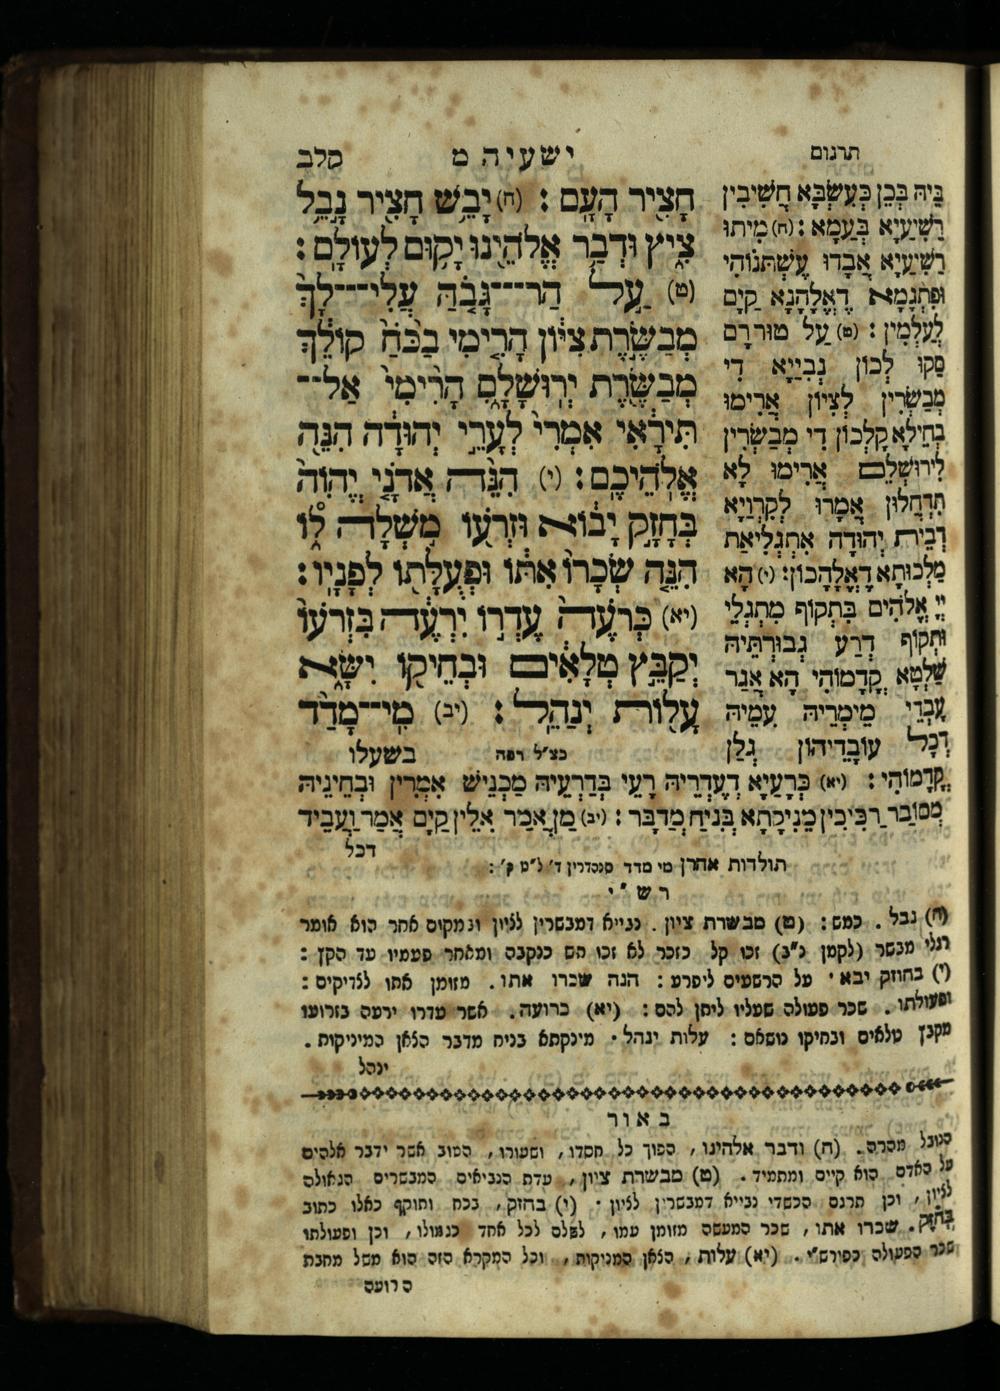 תרגום
ישעיה מ
קלב
חָצִיר הָעָם : (ח) יָבֵשׁ חָצִיר נָבֵל
צִיץ וּדְבַר אֱלֹהֵינוּ יָקוּם לְעוֹלָם :
(ט) עַל הַר־גָּבֹהַּ עֲלִי־לָךְ
מְבַשֶּׂרֶת צִיּוֹן הָרִימִי בַכֹּחַ קוֹלֵךְ
מְבַשֶּׂרֶת יְרוּשָׁלָםִ הָרִימִי אַל־
תִּירָאִי אִמְרִי לְעָרֵי יְהוּדָה הִנֵּה
אֱלֹהֵיכֶם : (י) הִנֵּה אֲדֹנָי יֱהוִֹה
בְּחָזָק יָבוֹא וּזְרֹעוֹ מֹשְׁלָה לוֹ
הִנֵּה שְׂכָרוֹ אִתּוֹ וּפְעֻלָּתוֹ לְפָנָיו :
(יא) כְּרֹעֶה עֶדְרוֹ יִרְעֶה בִּזְרֹעוֹ
יְקַבֵּץ טְלָאִים וּבְחֵיקוֹ יִשָּׂא
עָלוֹת יְנַהֵל : (יב) מִי־מָדַד
כצ״ל רפה
בשעלו
בֵּיהּ בְּכֵן כְּעִשְׂבָּא חֲשִׁיבִין
רַשִׁיעַיָא בְּעַמָא : (ח) מִיתוּ
רַשִׁיעַיָא אֲבָדוּ עֶשְׁתּוֹנוֹהִי
וּפִתְגָמָא דֶאֱלָהָנָא קַיָם
לְעָלְמִין : (ט) עַל טוּר רָם
סַקוּ לְכוֹן נְבִיַיָא דִי
מְבַשְׂרִין לְצִיוֹן אֲרִימוּ
בְּחֵילָא קָלְכוֹן דִי מְבַשְׂרִין
לִירוּשְׁלֵם אֲרִימוּ לָא
תִדְחֲלוּן אֲמָרוּ לְקִרְוַיָא
דְבֵית יְהוּדָה אִתְגְלִיאַת
מַלְכוּתָא דֶאֱלָהָכוֹן : (י) הָא
יְיָ אֱלֹהִים בִּתְקוֹף מִתְגְלֵי
וּתְקוֹף דְרַע גְבוּרְתֵּיהּ
שַׁלְטָא קֳדָמוֹהִי הָא אֲגַר
עָבְדֵי מֵימְרֵיהּ עִמֵיהּ
דְכָל עוֹבָדֵיהוֹן גְלַן
קֳדָמוֹהִי : (יא) כְּרָעֲיָא דְעֶדְרֵיהּ רָעֵי בִּדְרָעֵיהּ מְכַנֵישׁ אִמְרִין וּבְחֵינֵיהּ
מְסוֹבַר רַכִּיכִין מֵנִיקָתָא בְּנִיחַ מְדַבַּר : (יב) מַן אֲמַר אִלֵין קַיָם אֲמַר וַעֲבִיד
דכל
תולדות אהרן מי מדד סנהדרין ד׳ ל״ט ק׳ :
רש״י
(ח) נבל . כמש : (ט) מבשרת ציון . נבייא דמבשרין לציון ובמקום אחר הוא אומר
רגלי מבשר (לקמן נ״ב) זכו קל כזכר לא זכו הם כנקבה ומאחר פעמיו עד הקץ :
(י) בחוזק יבא · על הרשעים ליפרע : הנה שכרו אתו . מזומן אתו לצדיקים :
ופעולתו . שכר פעולה שעליו ליתן להם : (יא) כרועה . אשר עדרו ירעה בזרועו
מקבץ טלאים ובחיקו נושאם : עלות ינהל · מינקתא בניח מדבר הצאן המיניקות .
ינהל
באור
הנובל מהרה . (ח) ודבר אלהינו , הפוך כל חסדו , ושעורו , הטוב אשר ידבר אלהים
על האדם הוא קיים ומתמיד . (ט) מבשרת ציון , עדת הנביאים המבשרים הגאולה
לציון , וכן תרגם הכשדי נבייא דמבשרין לציון · (י) בחזק , בכח ותוקף כאלו כתוב
בחזק . שכרו אתו , שכר המעשה מזומן עמו , לשלם לכל אחד כגמולו , וכן ופעולתו
שכר הפעולה כפירש״י . (יא) עלות , הצאן המניקות , וכל המקרא הזה הוא משל מחבת
הרועה